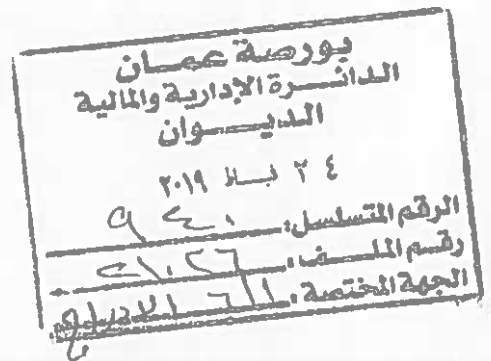 بورصة عمان
الدائرة الإدارية والمالية
الديوان
٢٤ شباط ٢٠١٩
الرقم المتسلسل: ٩٤٠
رقم الملف:
الجهة المختصة: